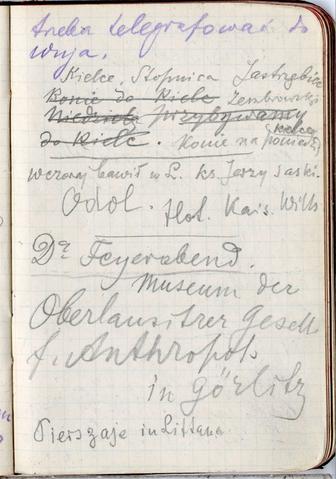 trzeba telegrafować do
wuja.
Kielce, Stopnica Jastrzębiec
Konie do Kielc Zembrowski
Niedziela przybywamy
do Kielc. Konie na poniedz. Kielce
wczoraj bawił w L. ks. Jerzy
Odol. Hot. Kais. Wilh
Dr Feyerabend.
Museum der
Oberlausitzer Gesell
f. Anthropols
in Görlitz
Pierszaje in Littaua